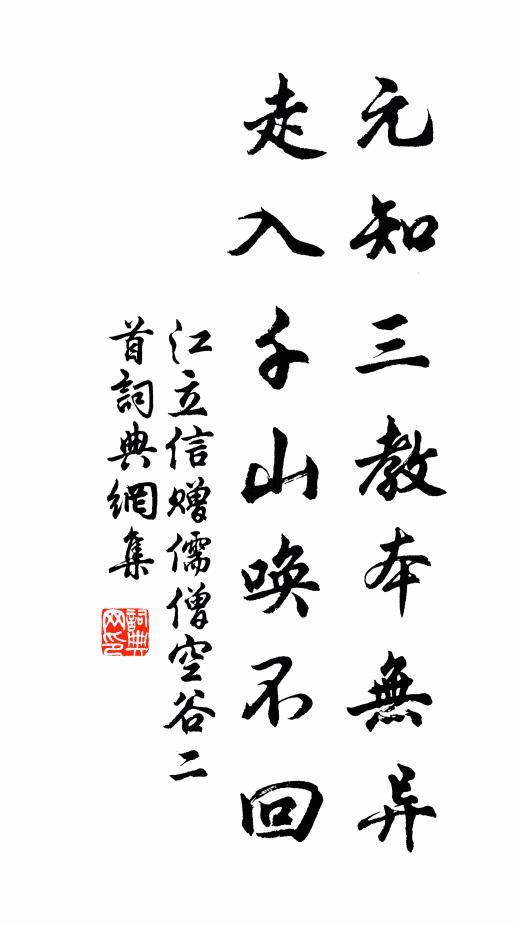 元知三教本無异
走入千山喚不回
江立信贈儒僧空谷二
首詞典網集
詞典
网印